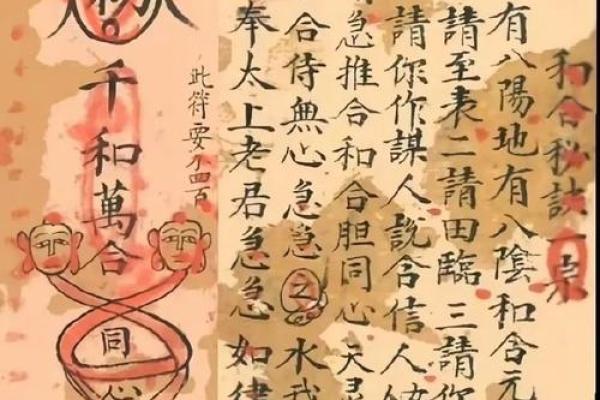 和合秘訣一宗
有八陽地有八陰和合元
請至表二請田臨三請你
請你作謀人説合信人
急推合和合胆同心天灵
合侍無心急急之水我
奉太上老君急急如律
此符要不四百
千和萬合
同心